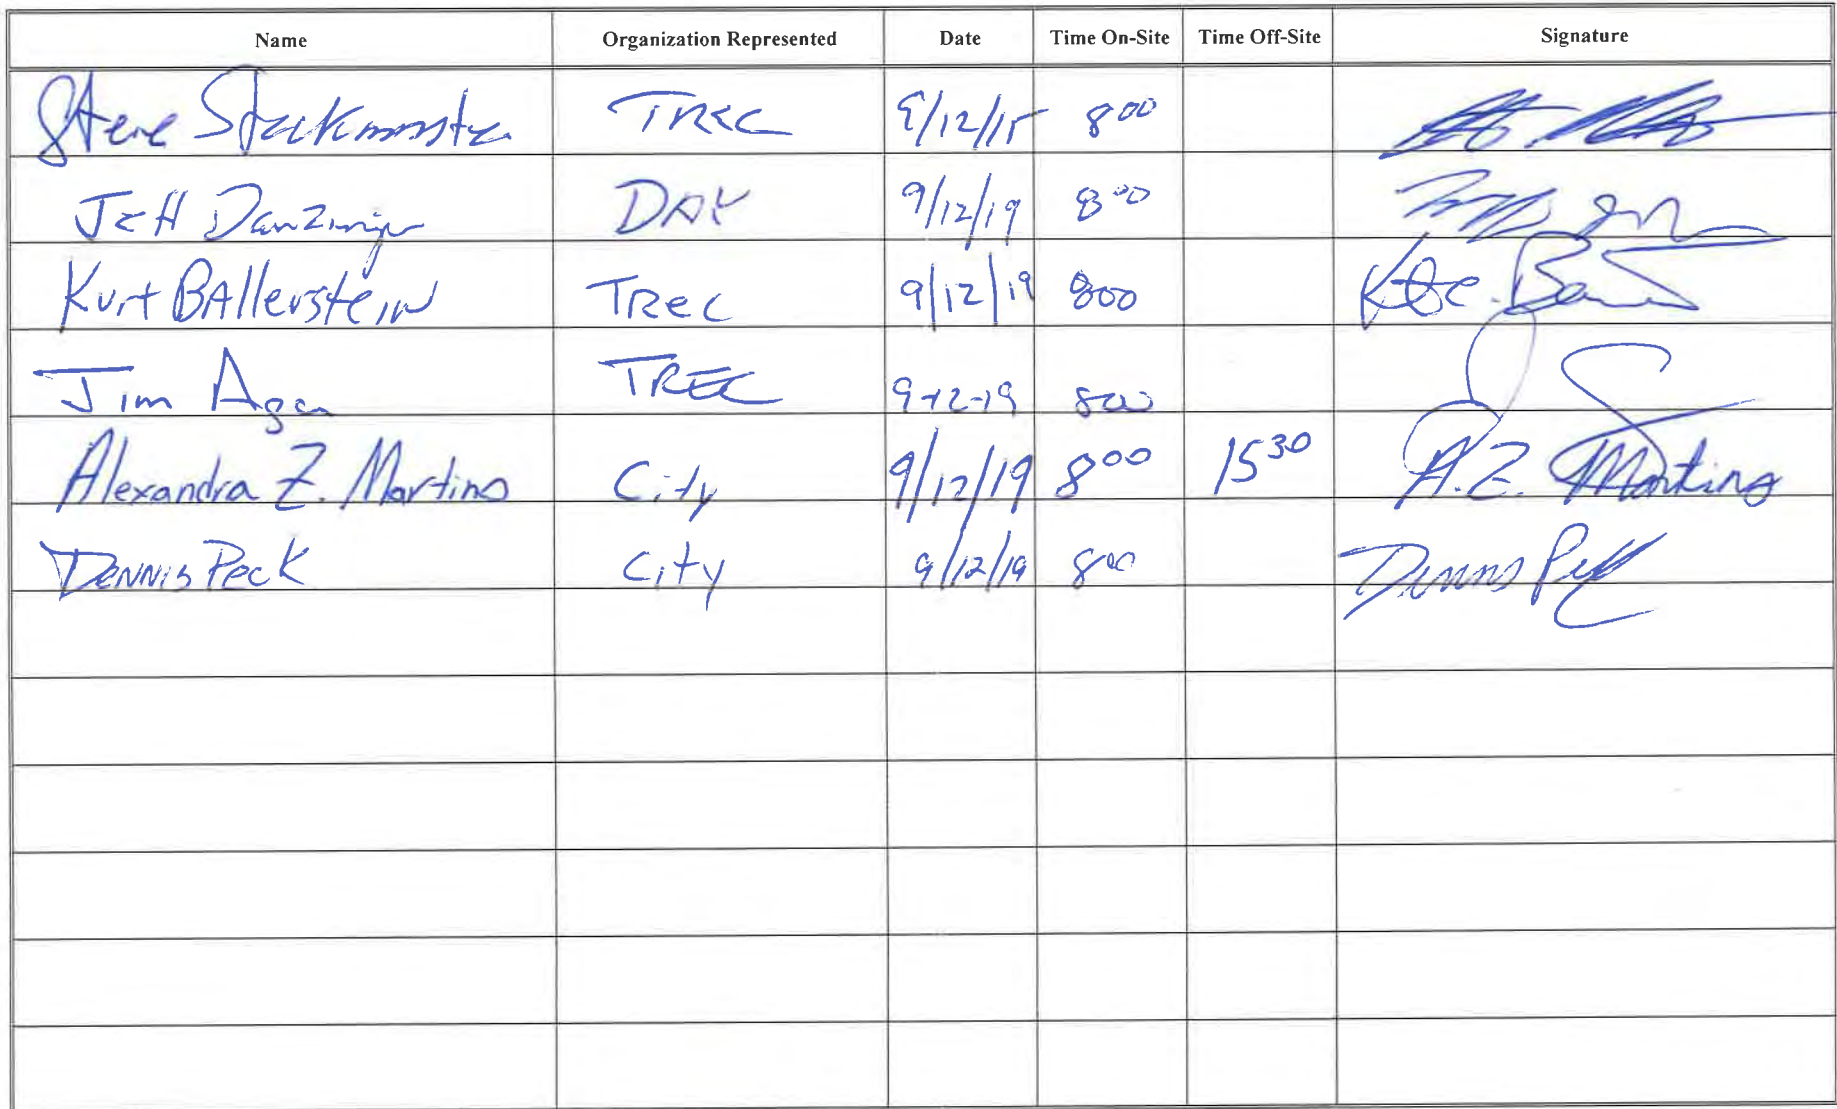 Name Organization Represented Date Time On-Site Time Off-Site Signature
Steve TREC 9/12/19 800
Jeff Danzinger DAY 9/12/19 800
Kurt BAllerstein TReC 9/12/19 800
Jim Agan TREC 9-12-19 800
Alexandra Z. Martino City 9/12/19 800 1530 A.Z. Martino
Dennis Peck City 9/12/19 800 Dennis Peck